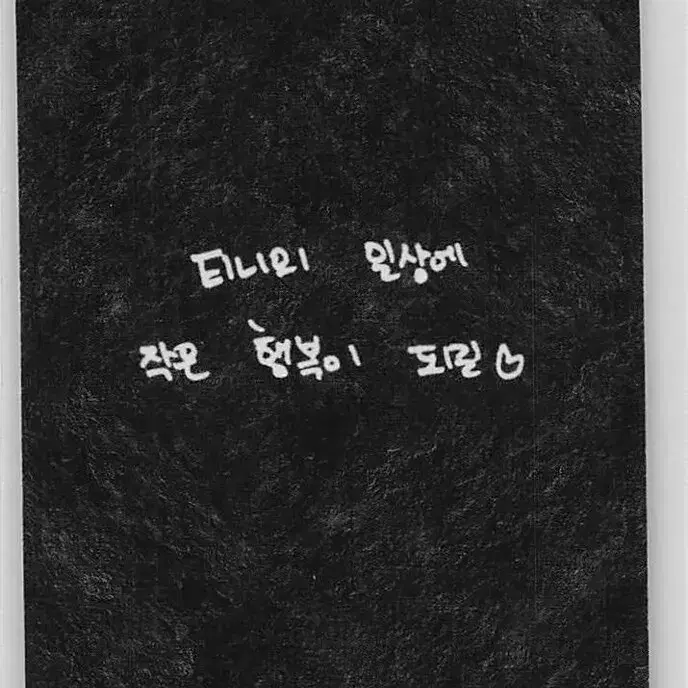 티니의 일상에
작은 행복이 되길♡